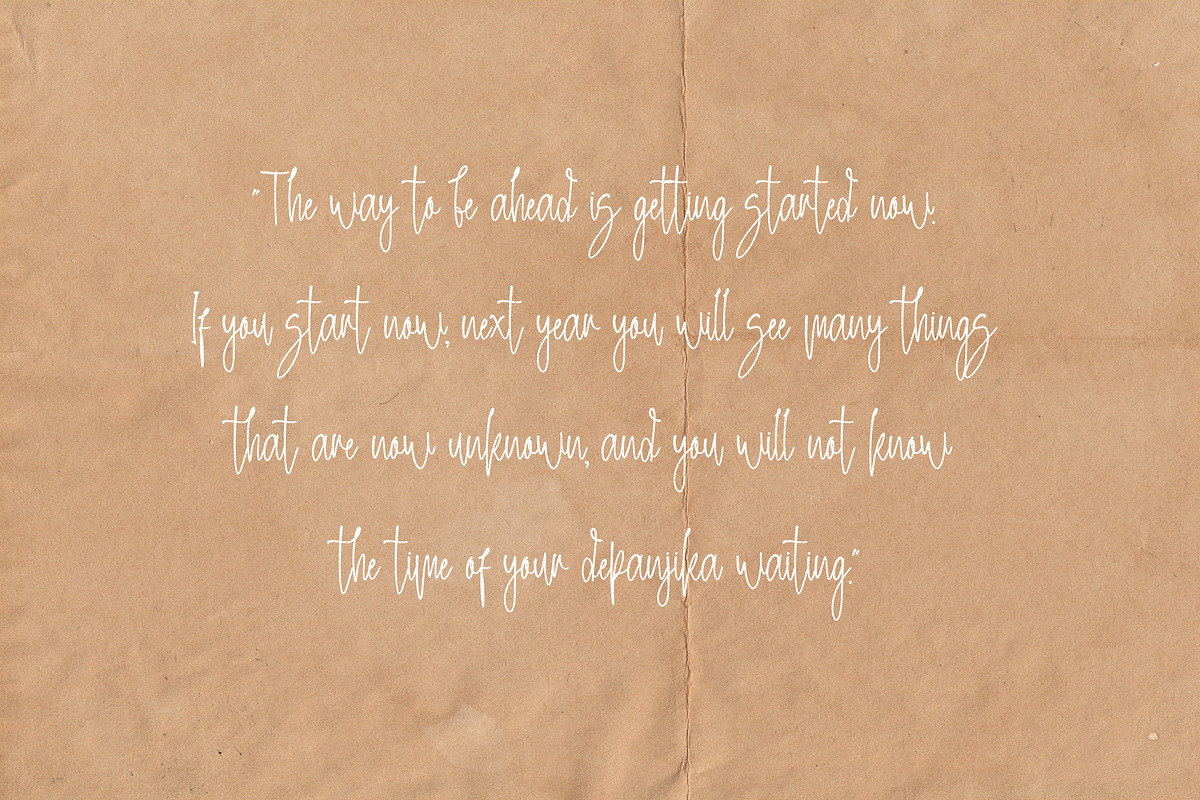 "The way to be ahead is getting started now.
If you start now, next year you will see many things
that are now unknown, and you will not know
the time of your depanjika waiting."